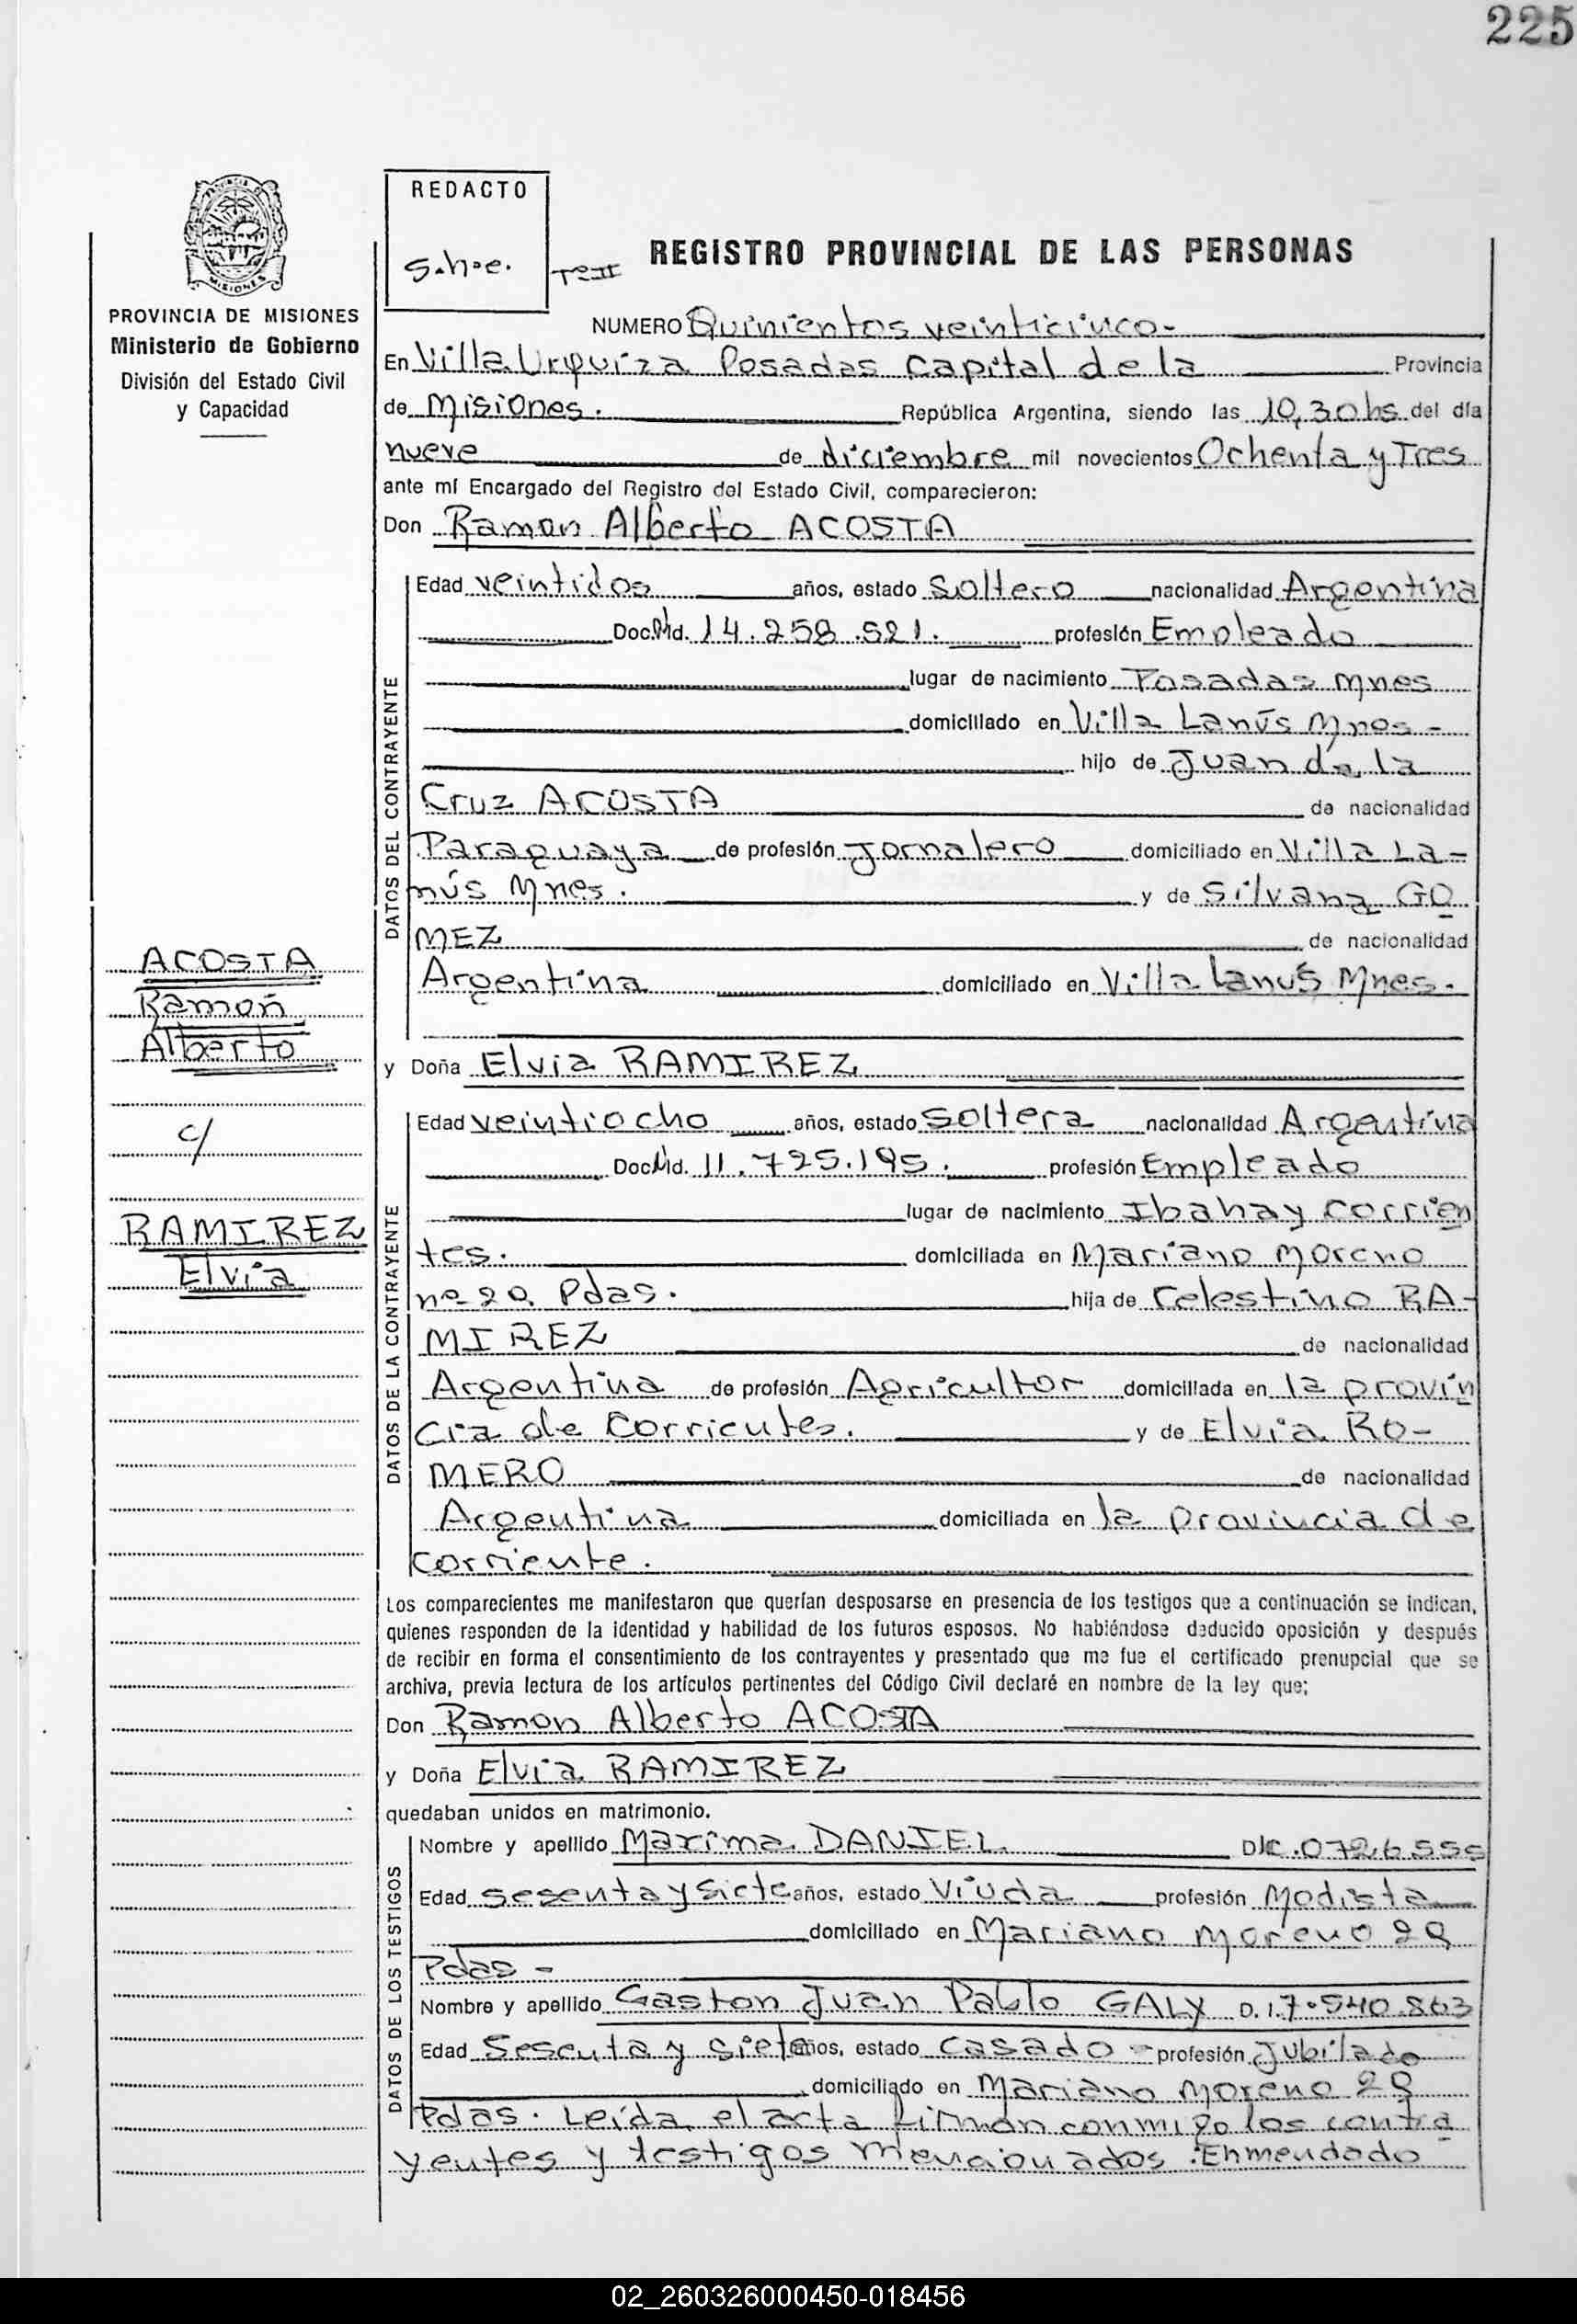 225
REDACTO
S.h.e.
Tº II
REGISTRO PROVINCIAL DE LAS PERSONAS
MISIONES
PROVINCIA DE MISIONES
Ministerio de Gobierno
División del Estado Civil
y Capacidad
NUMERO Quinientos veinticinco-
En Villa Urquiza Posadas Capital de la Provincia
de Misiones. República Argentina, siendo las 10,30 hs. del día
nueve de diciembre mil novecientos Ochenta y Tres
ante mí Encargado del Registro del Estado Civil, comparecieron:
Don Ramon Alberto ACOSTA
DATOS DEL CONTRAYENTE
Edad veintidos años, estado Soltero nacionalidad Argentina
Doc. Nid. 14.258.521. profesión Empleado
lugar de nacimiento Posadas Mnes
domiciliado en Villa Lanús Mnes-
hijo de Juan de la
Cruz ACOSTA de nacionalidad
Paraguaya de profesión Jornalero domiciliado en Villa La-
nús Mnes. y de Silvana GO
MEZ de nacionalidad
Argentina domiciliado en Villa Lanús Mnes.
ACOSTA
Ramón
Alberto
c/
RAMIREZ
Elvia
y Doña Elvia RAMIREZ
DATOS DE LA CONTRAYENTE
Edad veintiocho años, estado Soltera nacionalidad Argentina
Doc. Nid. 11.725.195. profesión Empleado
lugar de nacimiento Ibahay Corrien
tes. domiciliada en Mariano Moreno
nº 29 Pdas. hija de Celestino RA-
MIREZ de nacionalidad
Argentina de profesión Agricultor domiciliada en la provin
cia de Corrientes. y de Elvia RO-
MERO de nacionalidad
Argentina domiciliada en la provincia de
corriente.
Los comparecientes me manifestaron que querían desposarse en presencia de los testigos que a continuación se indican,
quienes responden de la identidad y habilidad de los futuros esposos. No habiéndose deducido oposición y después
de recibir en forma el consentimiento de los contrayentes y presentado que me fue el certificado prenupcial que se
archiva, previa lectura de los artículos pertinentes del Código Civil declaré en nombre de la ley que;
Don Ramon Alberto ACOSTA
y Doña Elvia RAMIREZ
quedaban unidos en matrimonio.
DATOS DE LOS TESTIGOS
Nombre y apellido Maxima DANIEL
Edad sesenta y Siete años, estado Viuda profesión Modista
domiciliado en Mariano Moreno 29
Pdas-
Nombre y apellido Gaston Juan Pablo GALY D.I. 7.540.863
Edad Sesenta y siete años, estado Casado- profesión Jubilado
domiciliado en Mariano Moreno 29
Pdas. Leída el acta firman conmigo los contra
yentes y testigos mencionados. Enmendado
02_260326000450-018456